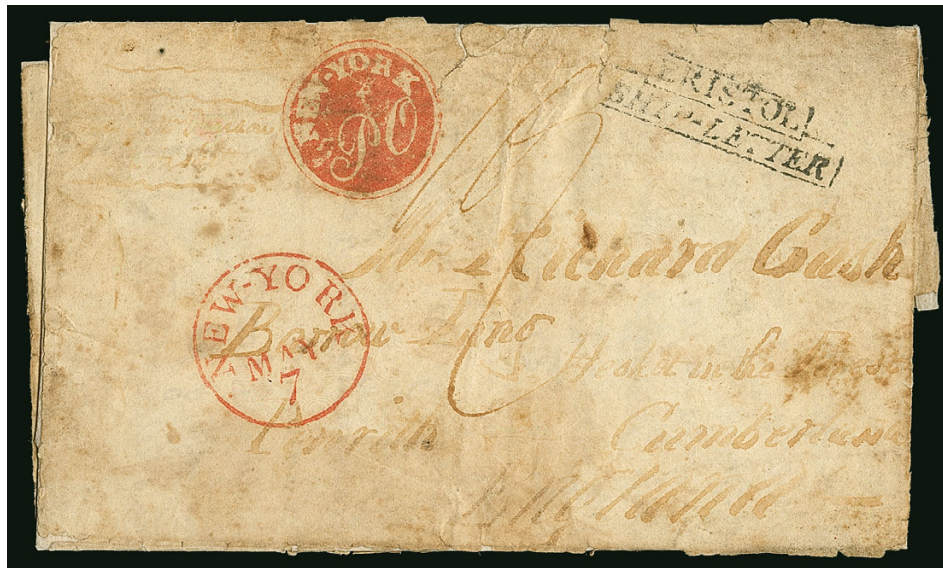 NEW-YORK
PO
BRISTOL
SHIP-LETTER
Mr. Richard Cush
NEW-YORK
MAY
7
Barrow
in the Forest
Penrith Cumberland
England